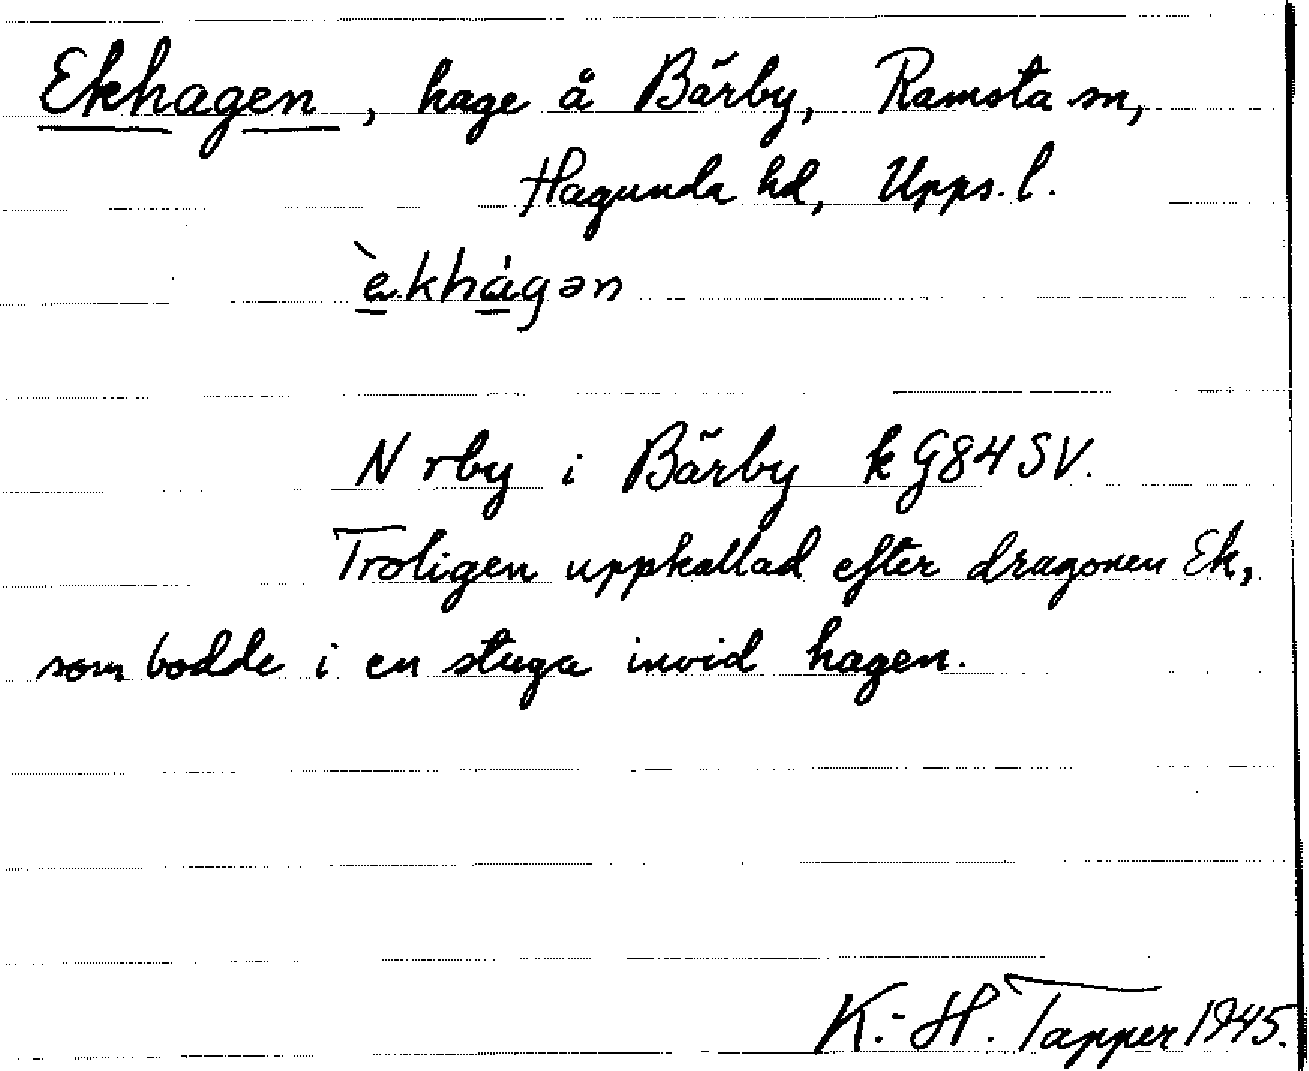 Ekhagen, hage å Bärby, Ramsta sn,
Hagunda hd, Upps. l.
è.khágən
N rby i Bärby k G84 SV.
Troligen uppkallad efter dragonen Ek,
som bodde i en stuga invid hagen.
K.-H. Tapper 1945.